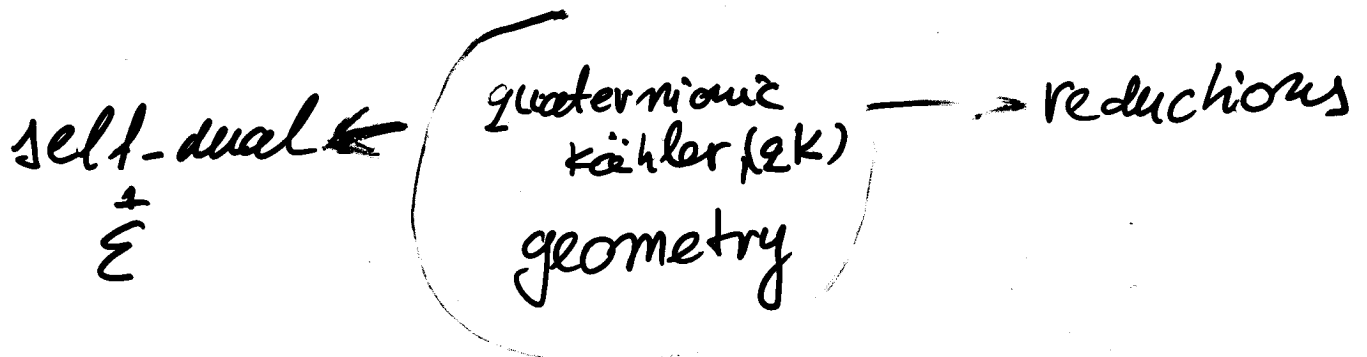 self-dual
+
E
quaternionic
Kähler (QK)
geometry
reductions